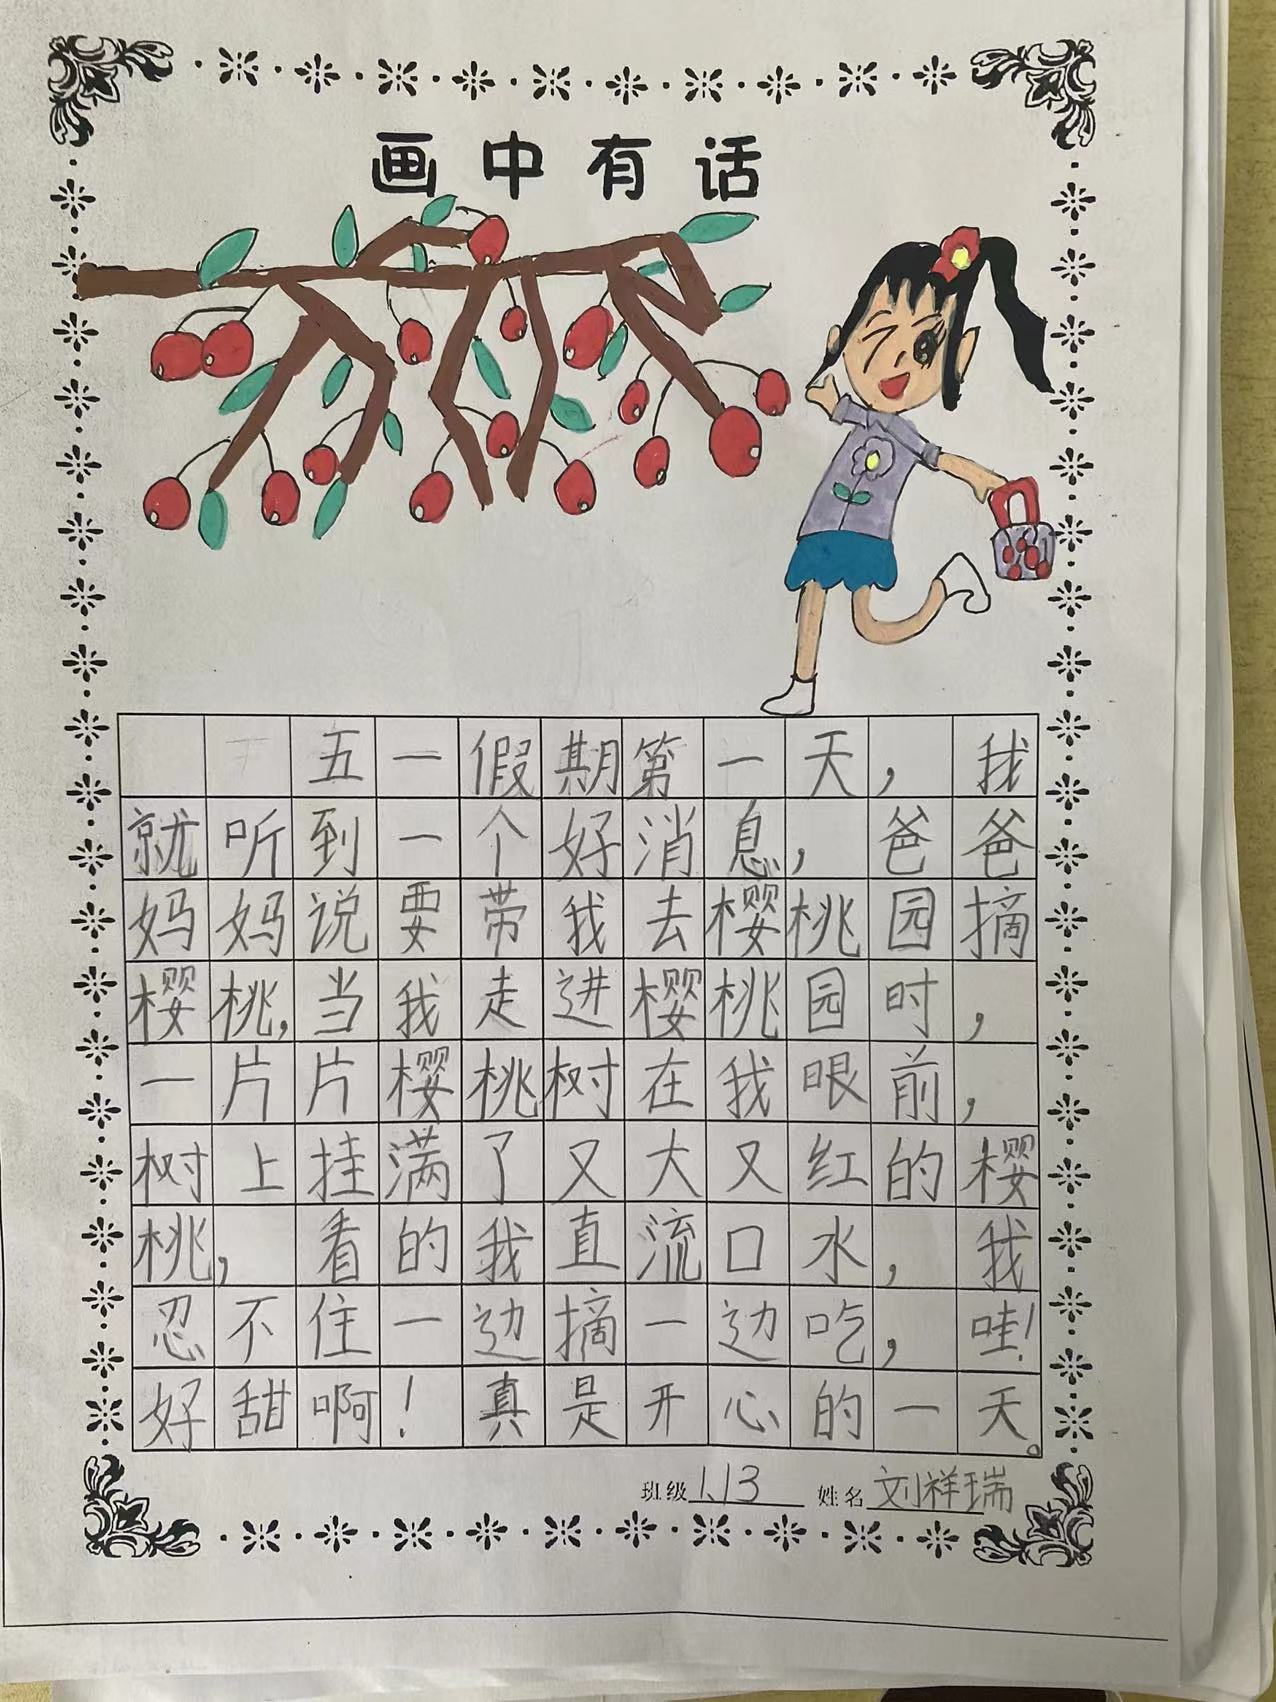 画中有话
五一假期第一天，我
就听到一个好消息，爸爸
妈妈说要带我去樱桃园摘
樱桃，当我走进樱桃园时，
一片片樱桃树在我眼前，
树上挂满了又大又红的樱
桃，看的我直流口水，我
忍不住一边摘一边吃，哇！
好甜啊！真是开心的一天。
班级1.13 姓名刘祥瑞